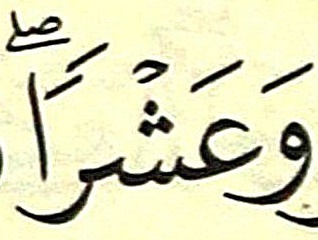 وَعَشْرًاۖ